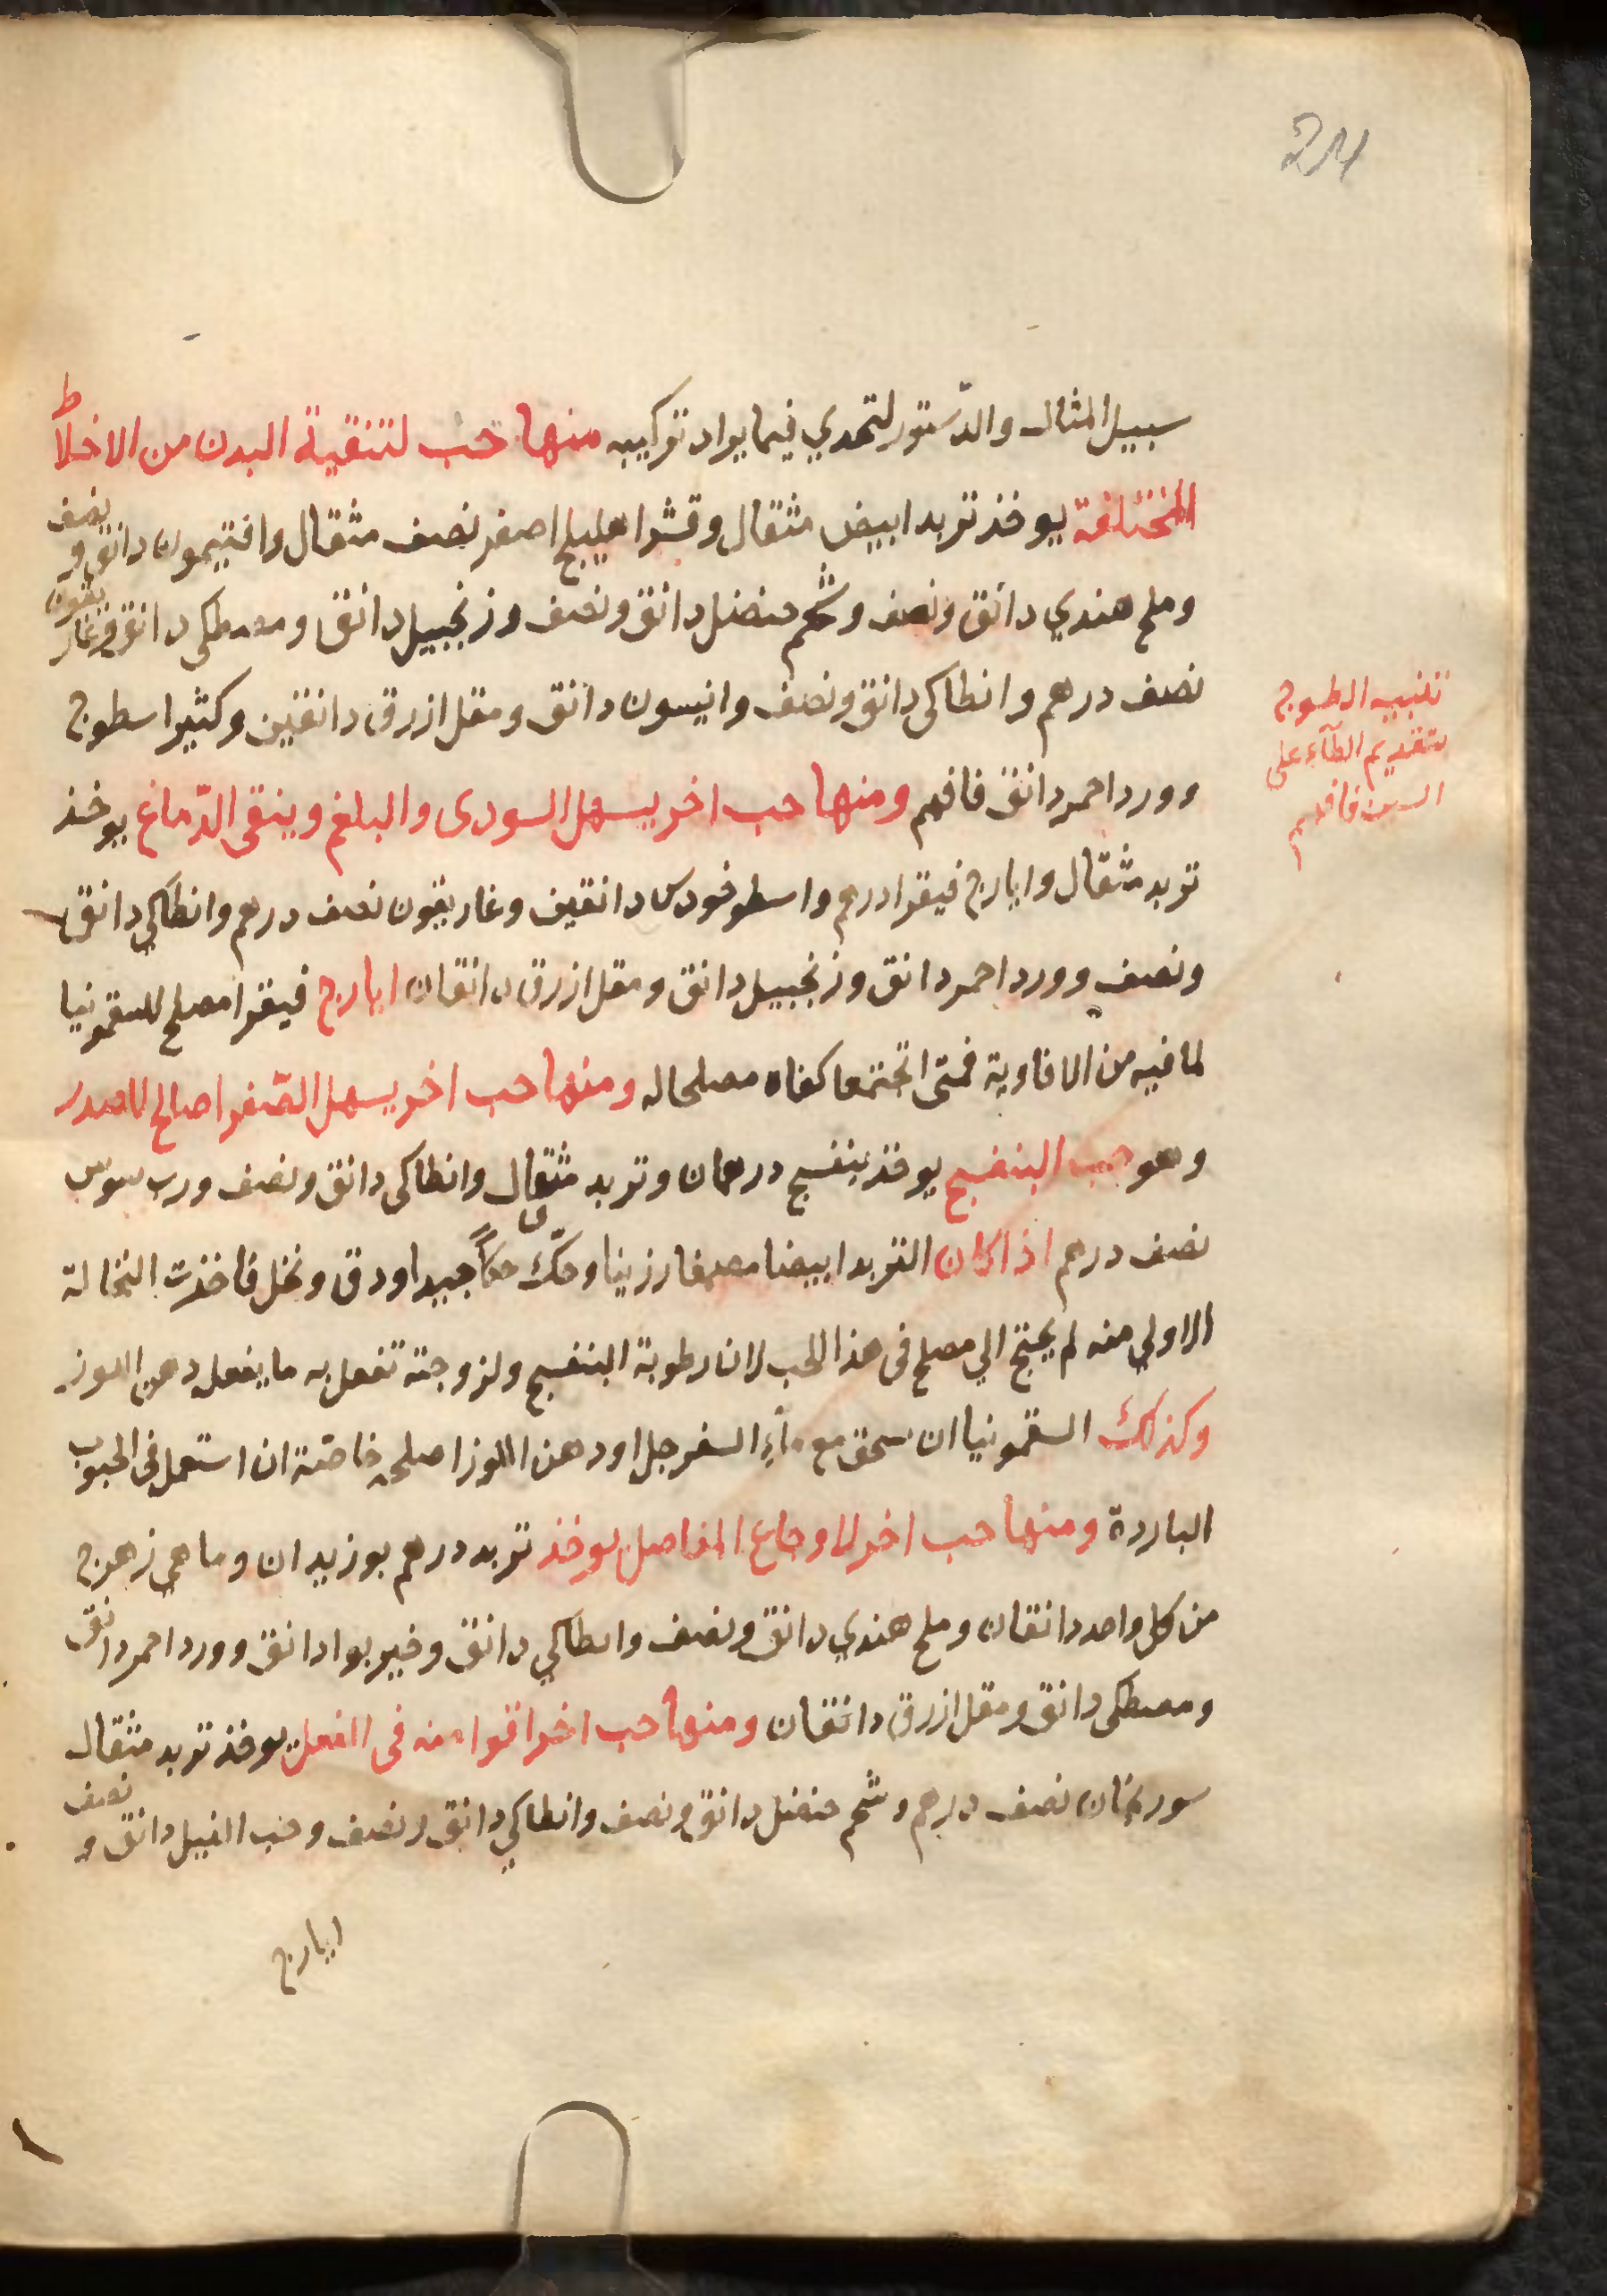 24
سبيل المثال والدّستور لتحدي فيما يراد تركيبه منها حب لتنقية البدن من الاخلاط
المختلفة يوخذ تربد ابيض مثقال وقشر اهليلج اصفر نصف مثقال وافتيمون دانق و نصف
وملح هندي دانق ونصف وشحم حنضل دانق ونصف وزنجبيل دانق ومصطكى دانق وغار يقون
نصف درهم وانطاكى دانق ونصف وانيسون دانق ومقل ازرق دانقين وكثيرا سطوج
وورد احمر دانق فافهم ومنها حب اخر يسهل السودى والبلغم وينقى الدّماغ يوخذ
تربد مثقال وايارج فيقرا درهم واسطوخودس دانقين وغاريقون نصف درهم وانطاكي دانق
ونصف وورد احمر دانق وزنجبيل دانق ومقل ازرق دانقان ايارج فيقرا مصلح للسقمونيا
لما فيه من الافاوية فمتى اجتمعا كفاه مصلحا له ومنها حب اخر يسهل الصّفرا صالح للصدر
وهو حب البنفسج يوخذ بنفسج درهمان وتربد مثقال وانطاكى دانق ونصف ورب سوس
نصف درهم اذا كان التربد ابيضا مصمغا رزينا وحكّ حكاً جيدا ودق ونخل فاخذت النخالة
الاولي منه لم يحتج الي مصلح فى هذا الحب لان رطوبة البنفسج ولزوجته تفعل به ما يفعل دهن اللوز
وكذلك السقمونيا ان سحق مع ماء السفرجل او دهن اللوز اصلحه خاصّة ان استعمل فى الحبوب
الباردة ومنها حب اخر لاوجاع المفاصل يوخذ تربد درهم بوزيدان وماهي زهرج
من كل واحد دانقان وملح هندي دانق ونصف وانطاكي دانق وخيربوا دانق وورد احمر دانق
ومصطكى دانق ومقل ازرق دانقان ومنها حب اخر اقوا منه فى الفعل يوخذ تربد مثقال
سورنجان نصف درهم وشحم حنضل دانق ونصف وانطاكي دانق ونصف وحب النيل دانق و نصف
ايارج
تنبيه الطسوج
بتقديم الطآء على
السين فافهم